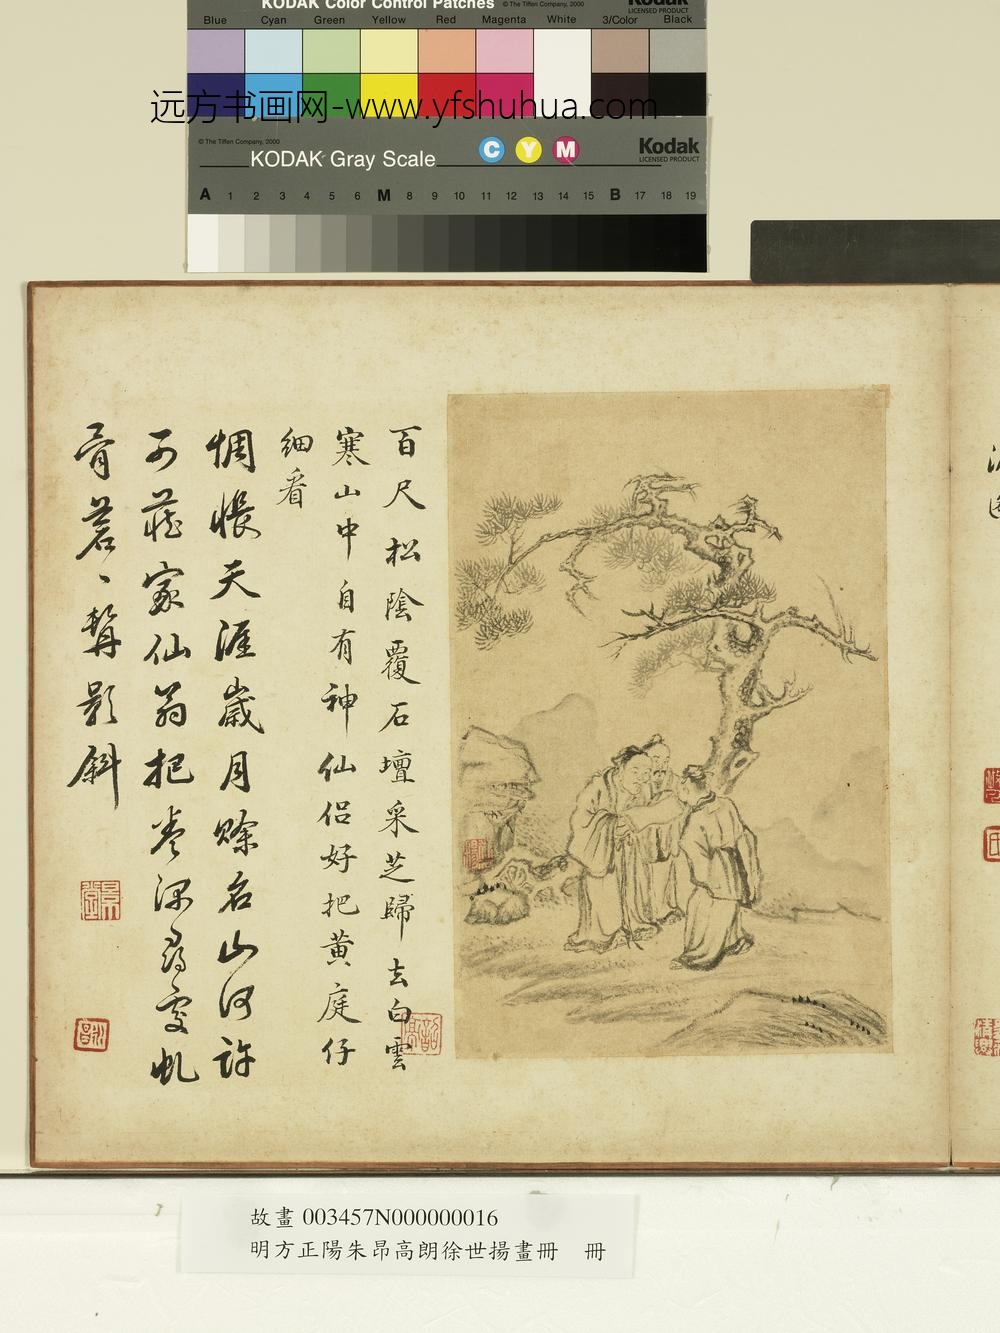 KODAK Color Control Patches © The Tiffen Company, 2000 Kodak
LICENSED PRODUCT
Blue Cyan Green Yellow Red Magenta White 3/Color Black
远方书画网-www.yfshuhua.com
© The Tiffen Company, 2000
KODAK Gray Scale C Y M Kodak
LICENSED PRODUCT
A 1 2 3 4 5 6 M 8 9 10 11 12 13 14 15 B 17 18 19
百尺松陰覆石壇采芝歸去白雲
寒山中自有神仙侶好把黃庭仔
細看
惆悵天涯歲月賒名山何許
可蔵家仙翁把卷深尋處虬
骨蒼〻髯影斜
故畫 003457N000000016
明方正陽朱昂高朗徐世揚畫冊 冊